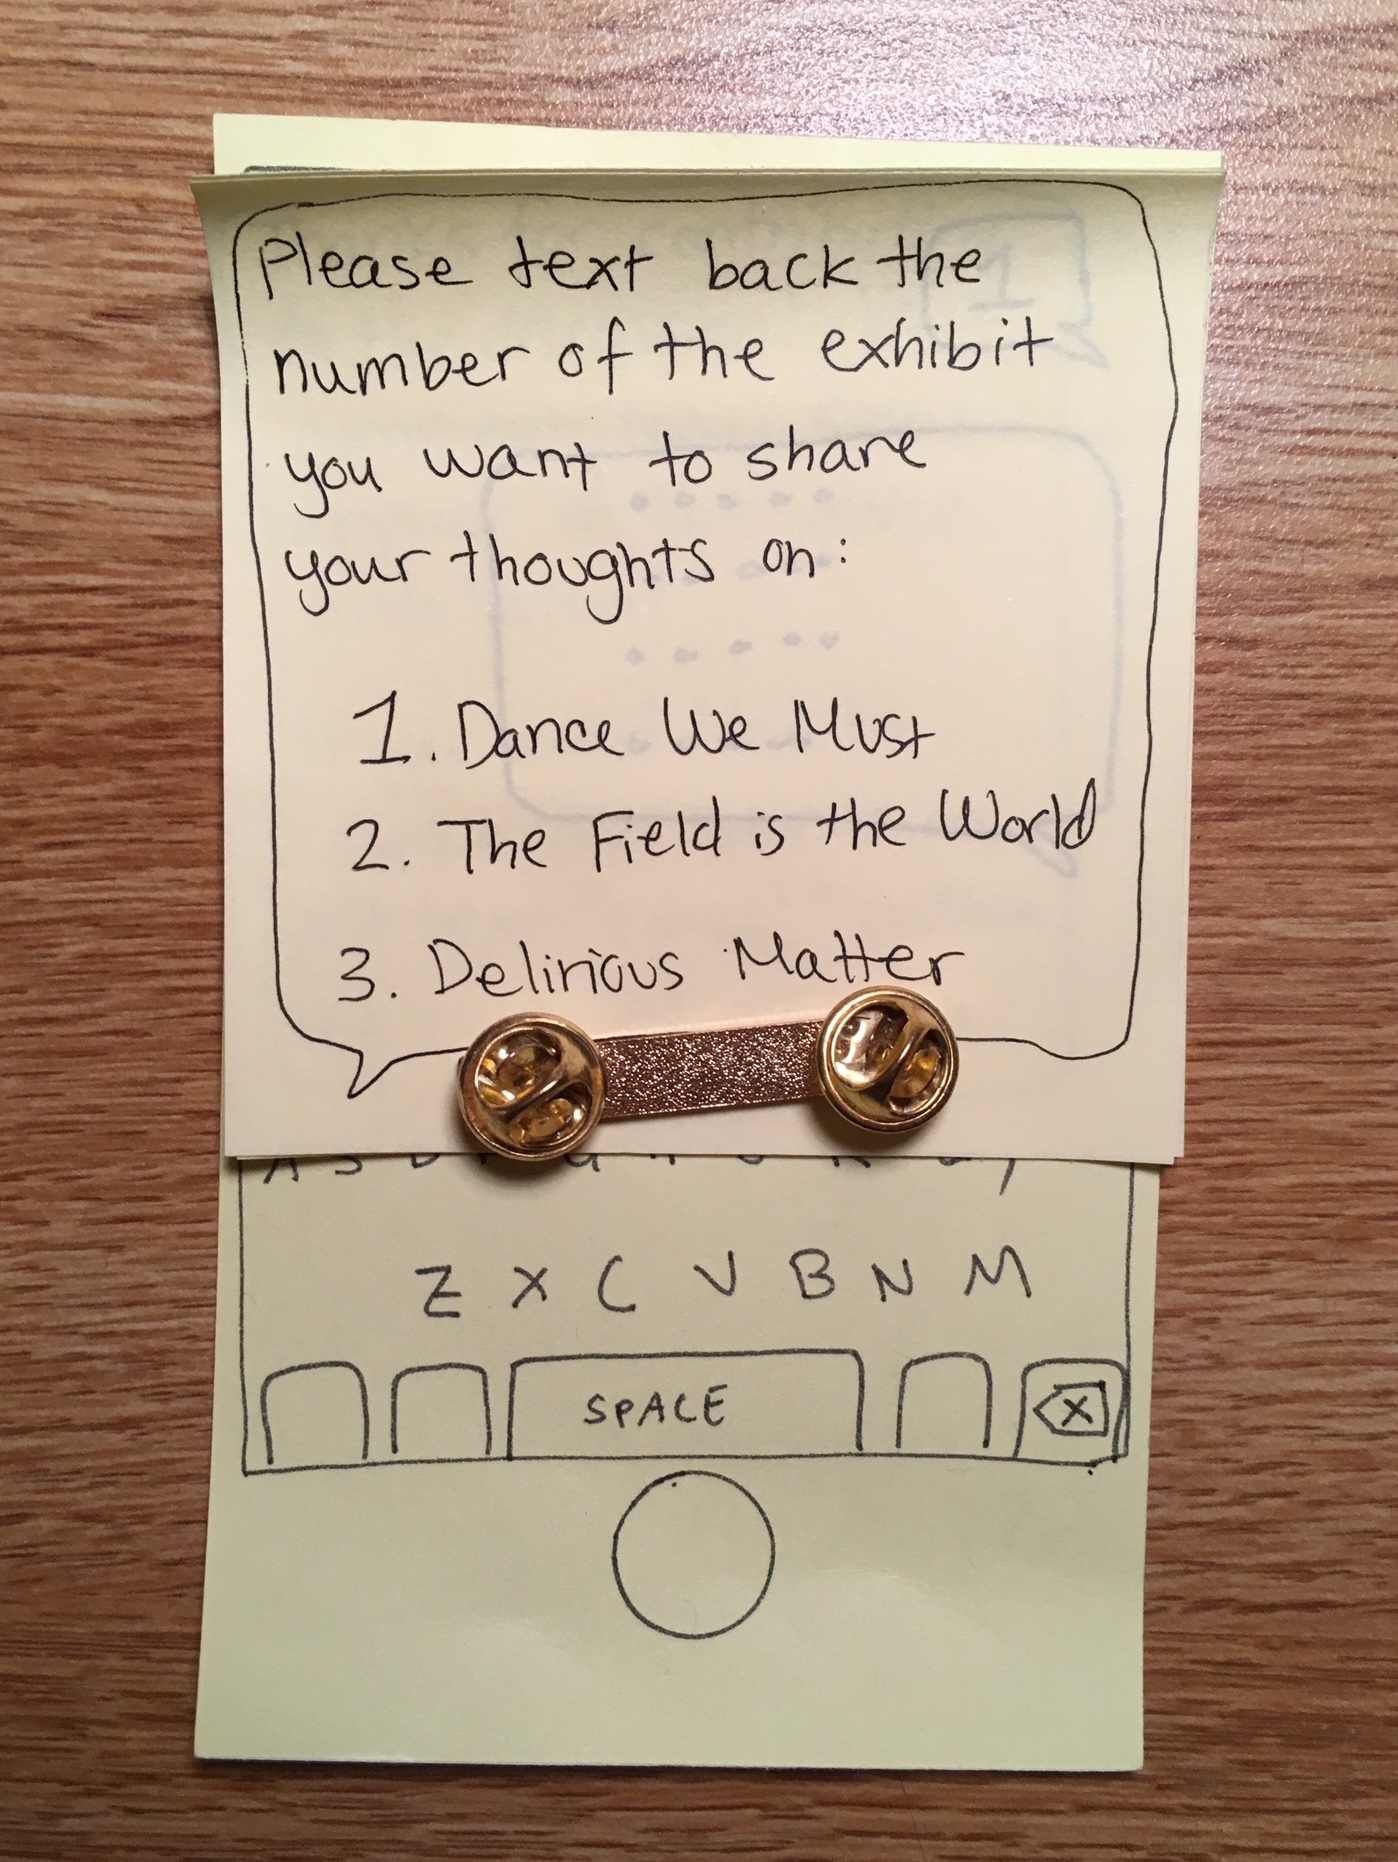 Please text back the
number of the exhibit
you want to share
your thoughts on:
1. Dance We Must
2. The Field is the World
3. Delirious Matter
Z X C V B N M
SPACE
X